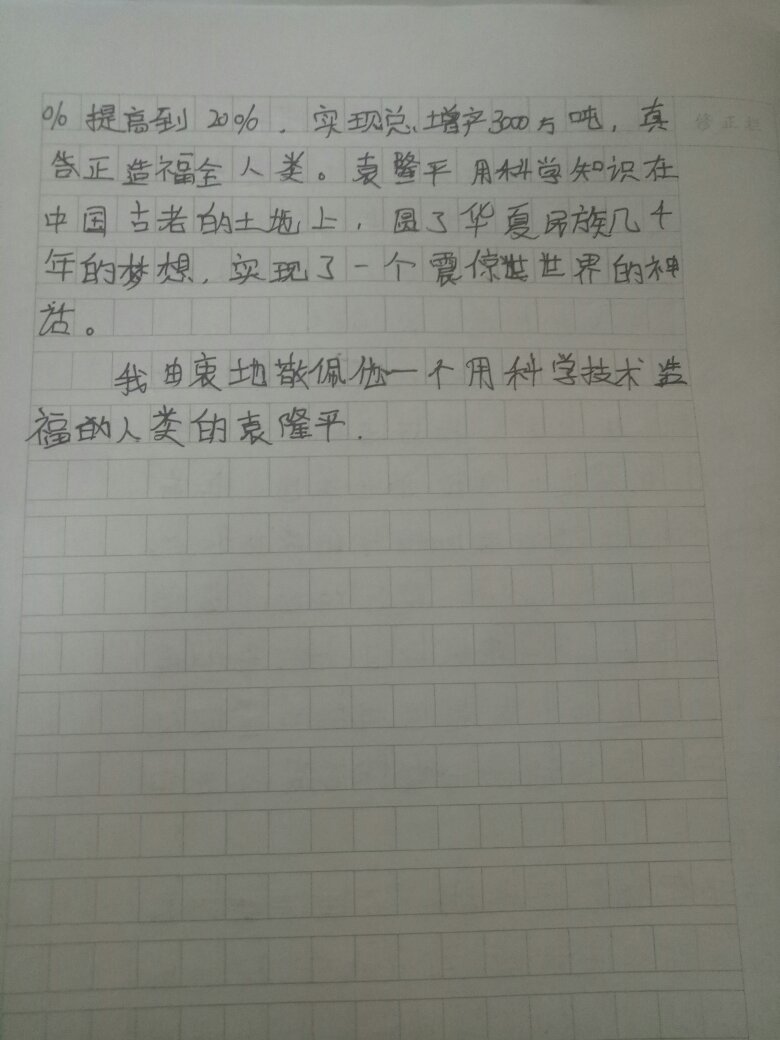 % 提高到 20%，实现总增产3000万吨，真
修正栏
告正造福全人类。袁隆平用科学知识在
中国古老的土地上，圆了华夏民族几千
年的梦想，实现了一个震惊世世界的神
话。
我由衷地敬佩他一个用科学技术造
福的人类的袁隆平.